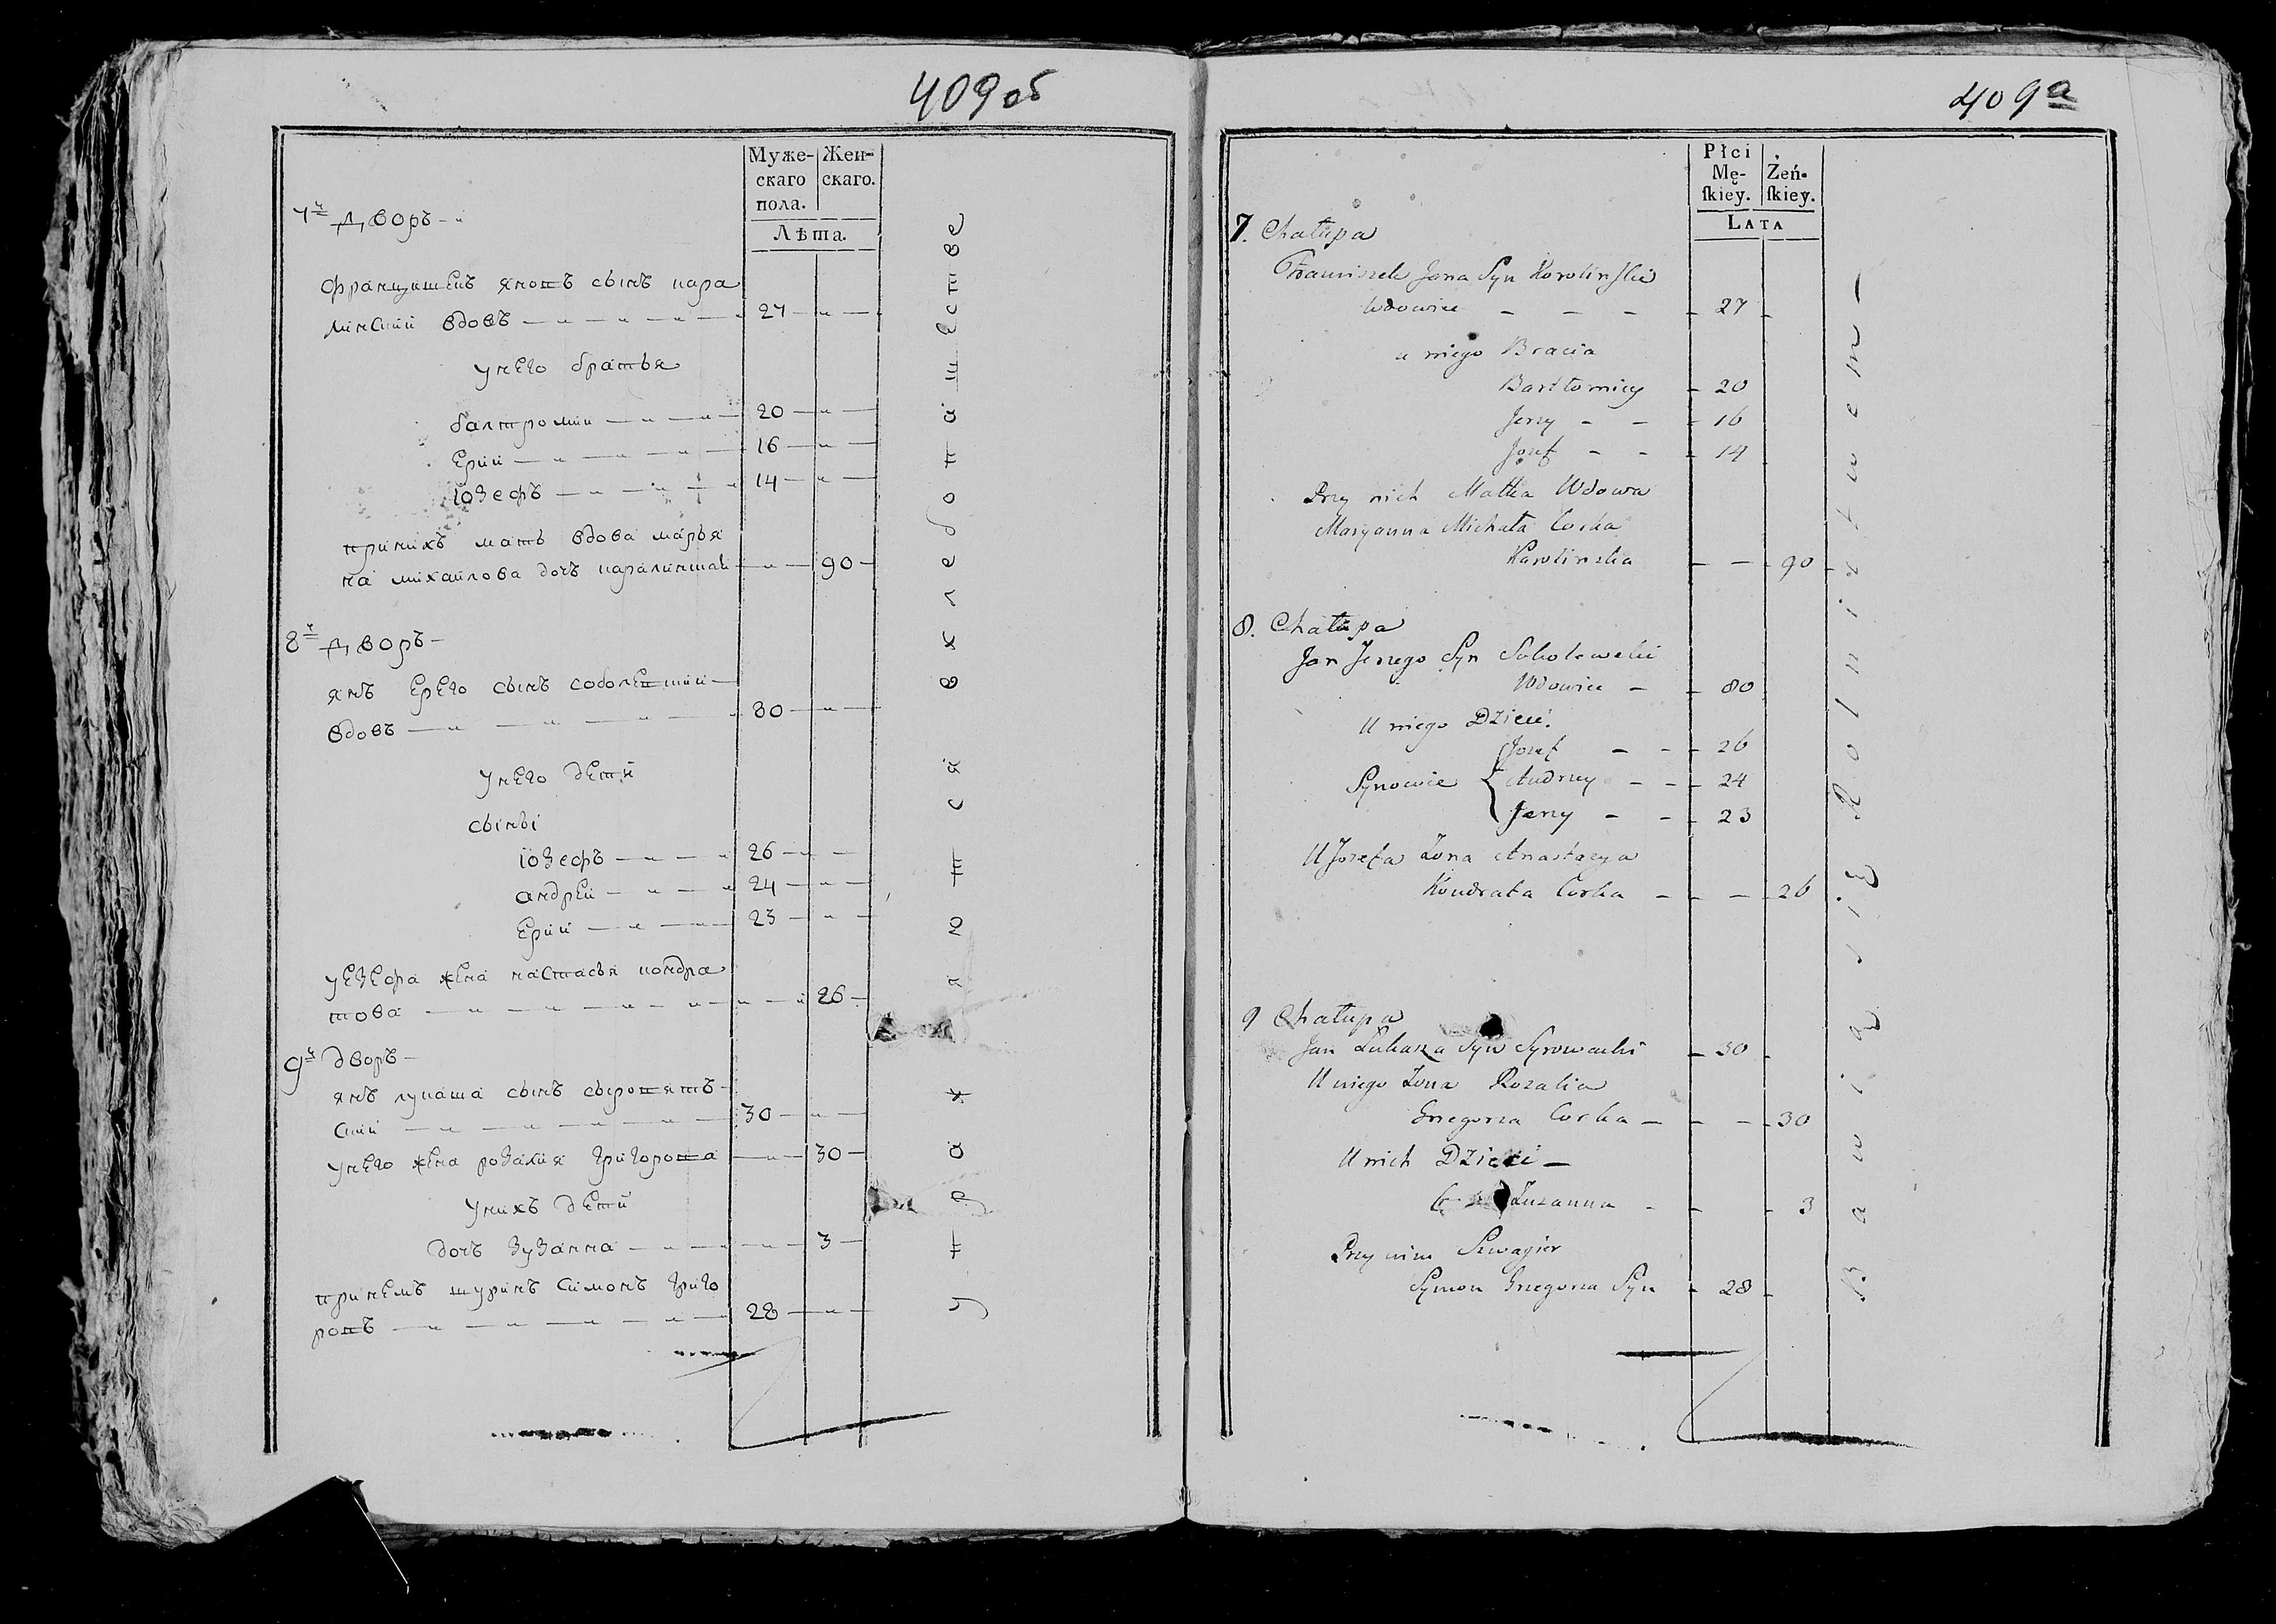 409 об
Муже-
скаго
пола.
Жен-
скаго.
Лѣта.
7й дворъ
Францишекъ яновъ сынъ кара
линский вдовъ 27
унего братья
балтромии 20
Ерии 16
Юзефъ 14
принихъ мать вдова марья
на михаилова дочъ каралинская 90
8й дворъ
янъ Ерего сынъ соболевский
вдовъ 80
унего дети
сыны
юзефъ 26
андрей 24
Ерий 23
уезефа жена настасья кондра
това 26
9й дворъ
янъ лукаша сынъ сыровят
ский 30
унего жена розалия григорова 30
унихъ дети
дочъ зузанна 3
принемъ шуринъ симонъ григо
ровъ 28
упражняются вхлебопашестве
409a
Płci
Mę-
ſkiey.
Żeń-
ſkiey.
LATA
7. Chałupa
Franciszek Jana Syn Karolinſki
Wdowiec 27
u niego Bracia
Bartłomiey 20
Jerzy 16
Jozef 14
Przy nich Matka Wdowa
Maryanna Michała Corka
Karolinska 90
8. Chałupa
Jan Jerzego Syn Sobolewski
Wdowiec 80
U niego Dzieci
Jozef 26
Synowie { Andrzey 24
Jerzy 23
U Jozefa Zona Anastazya
Kondrata Corka 26
9 Chałupa
Jan Łukasza Syn Syrowacki 30
U niego Zona Rozalia
Grzegorza Corka 30
U nich Dzieci
Zuzanna 3
Przy nim Szwagier
Symon Grzegorza Syn 28
Bawią się Rolnictwem